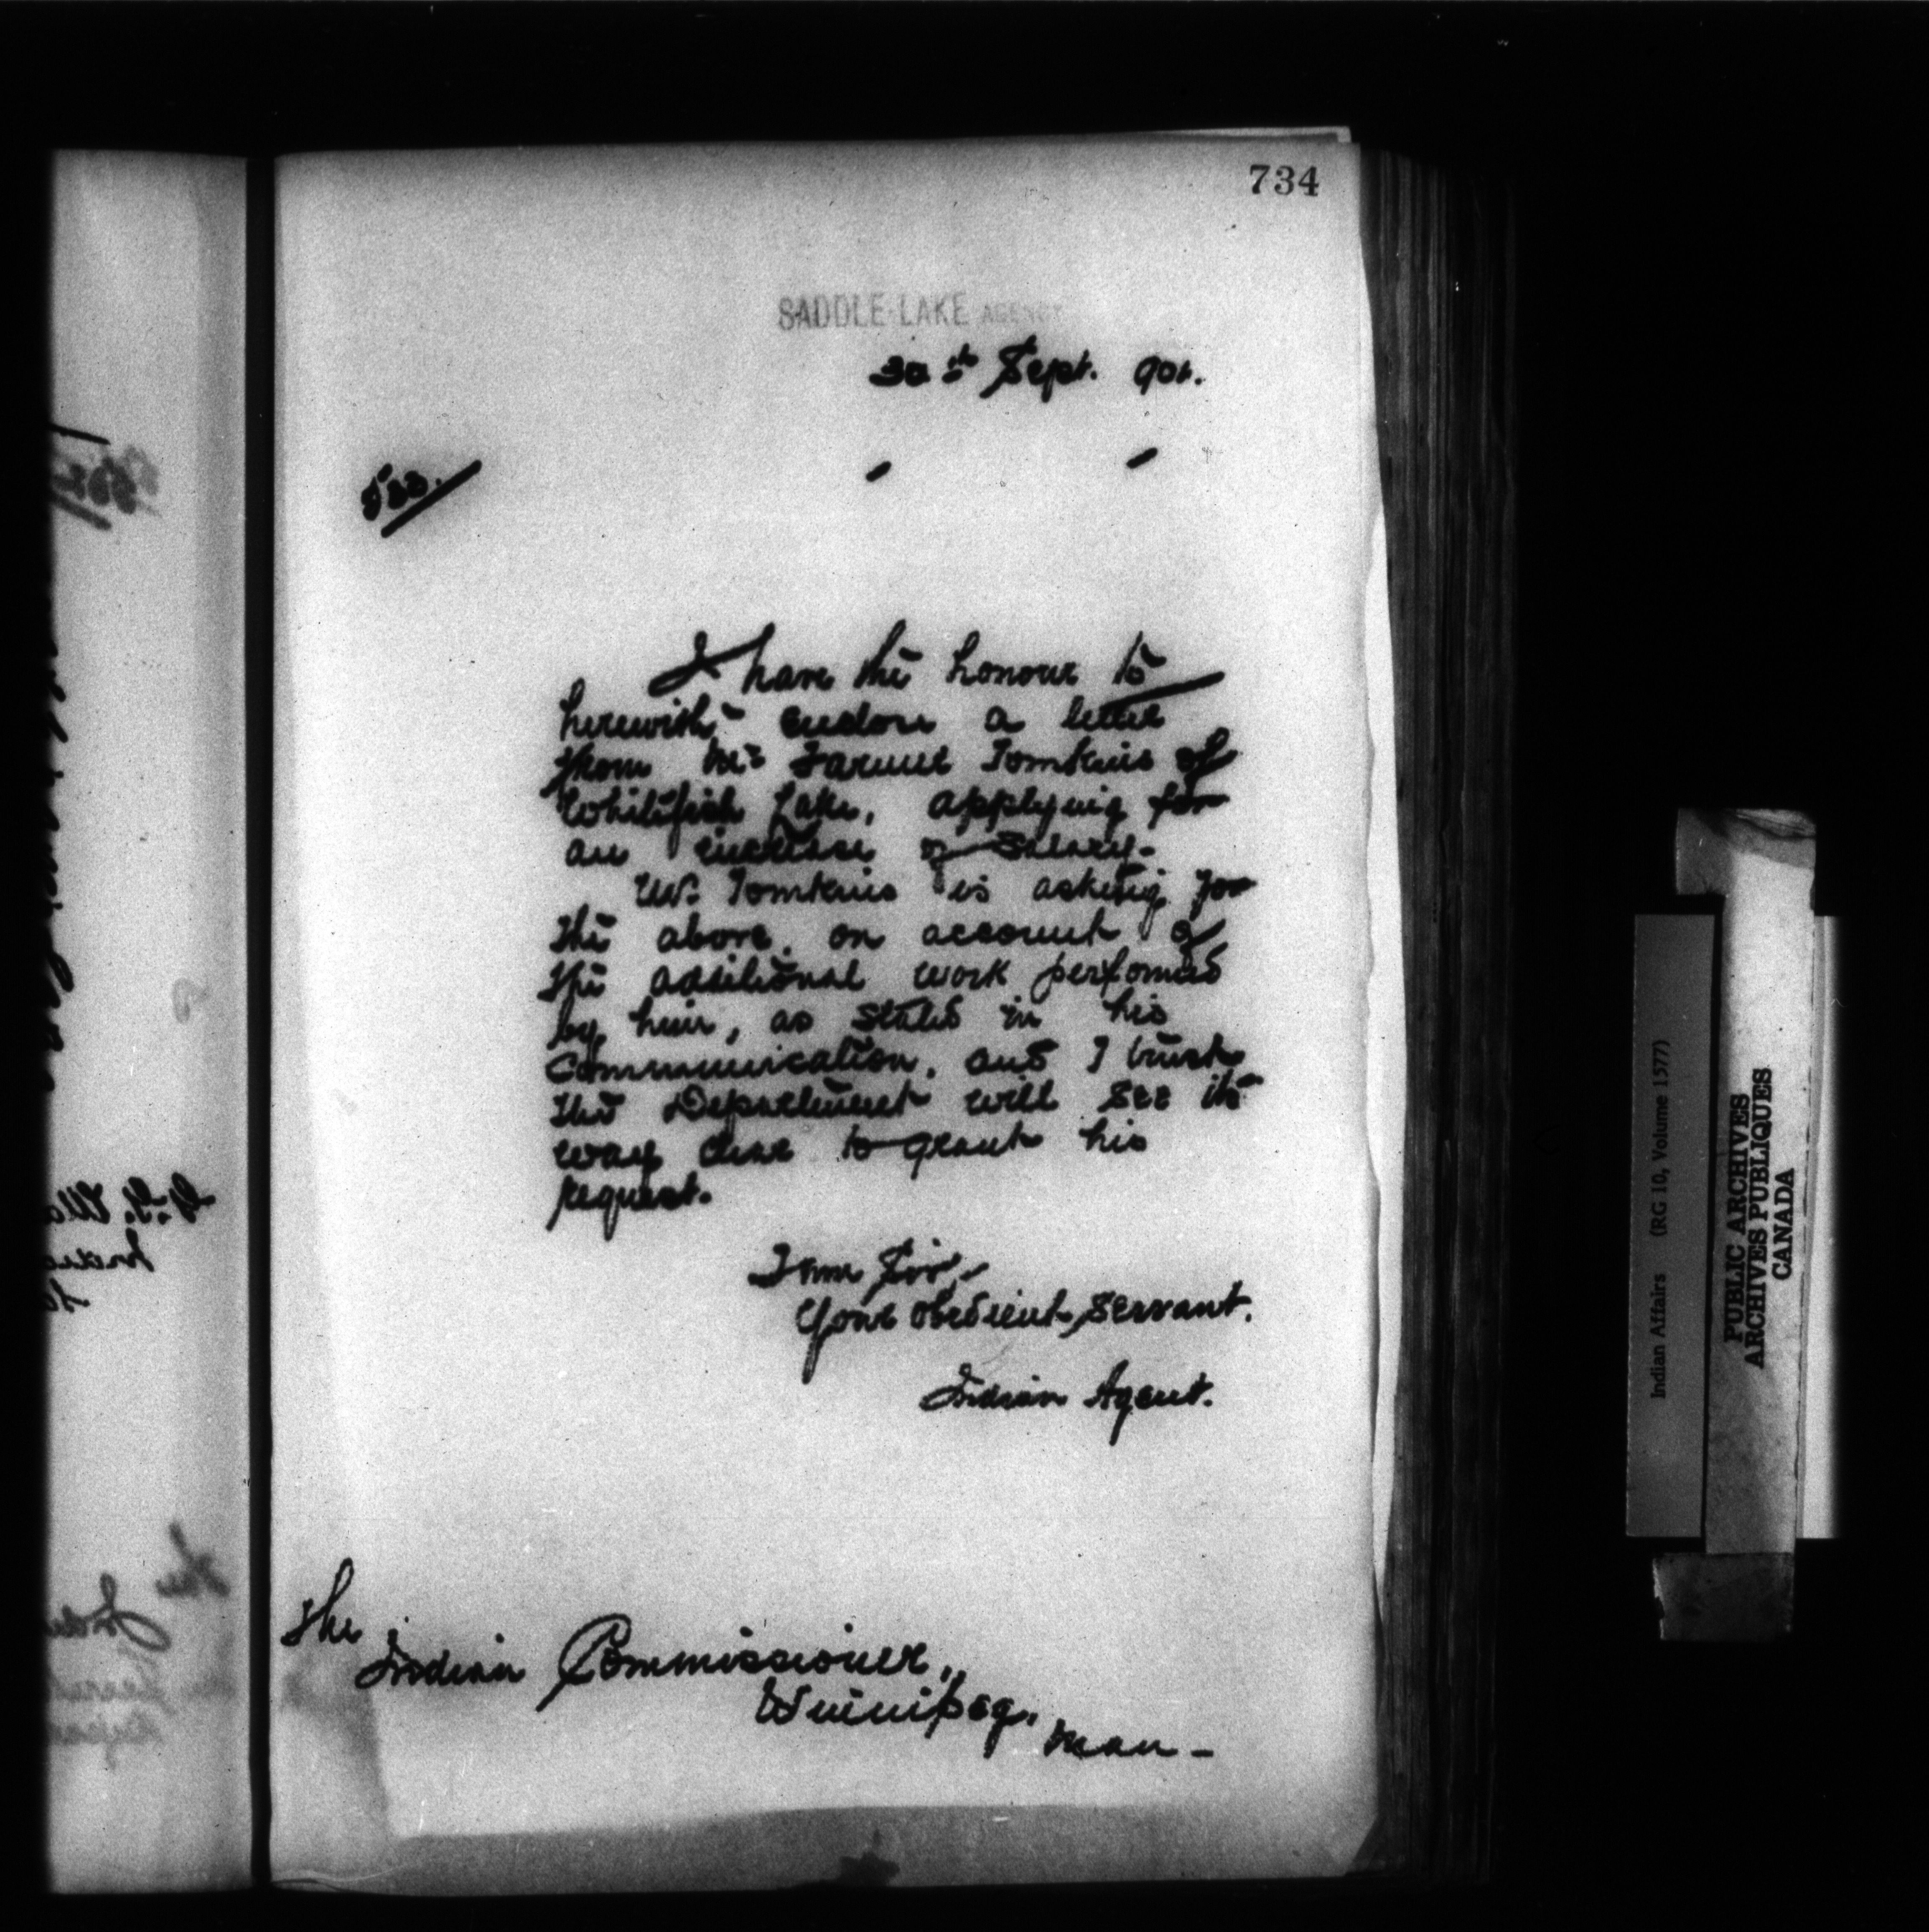 734
SADDLE LAKE AGENCY
30th Sept. 901.
I have the honour to
herewith enclose a letter
from Mr Farmer Tomkins of
Whitefish Lake, applying for
an increase of Salary.
Mr. Tomkins is asking for
the above, on account of
the additional work performed
by him, as stated in his
Communication, and I trust
the Department will see its
way clear to grant his
request.
I am Sir,
Your obedient Servant.
Indian Agent.
The
Indian Commissioner,
Winnipeg,
Man-
Indian Affairs (RG 10, Volume 1577)
PUBLIC ARCHIVES
ARCHIVES PUBLIQUES
CANADA